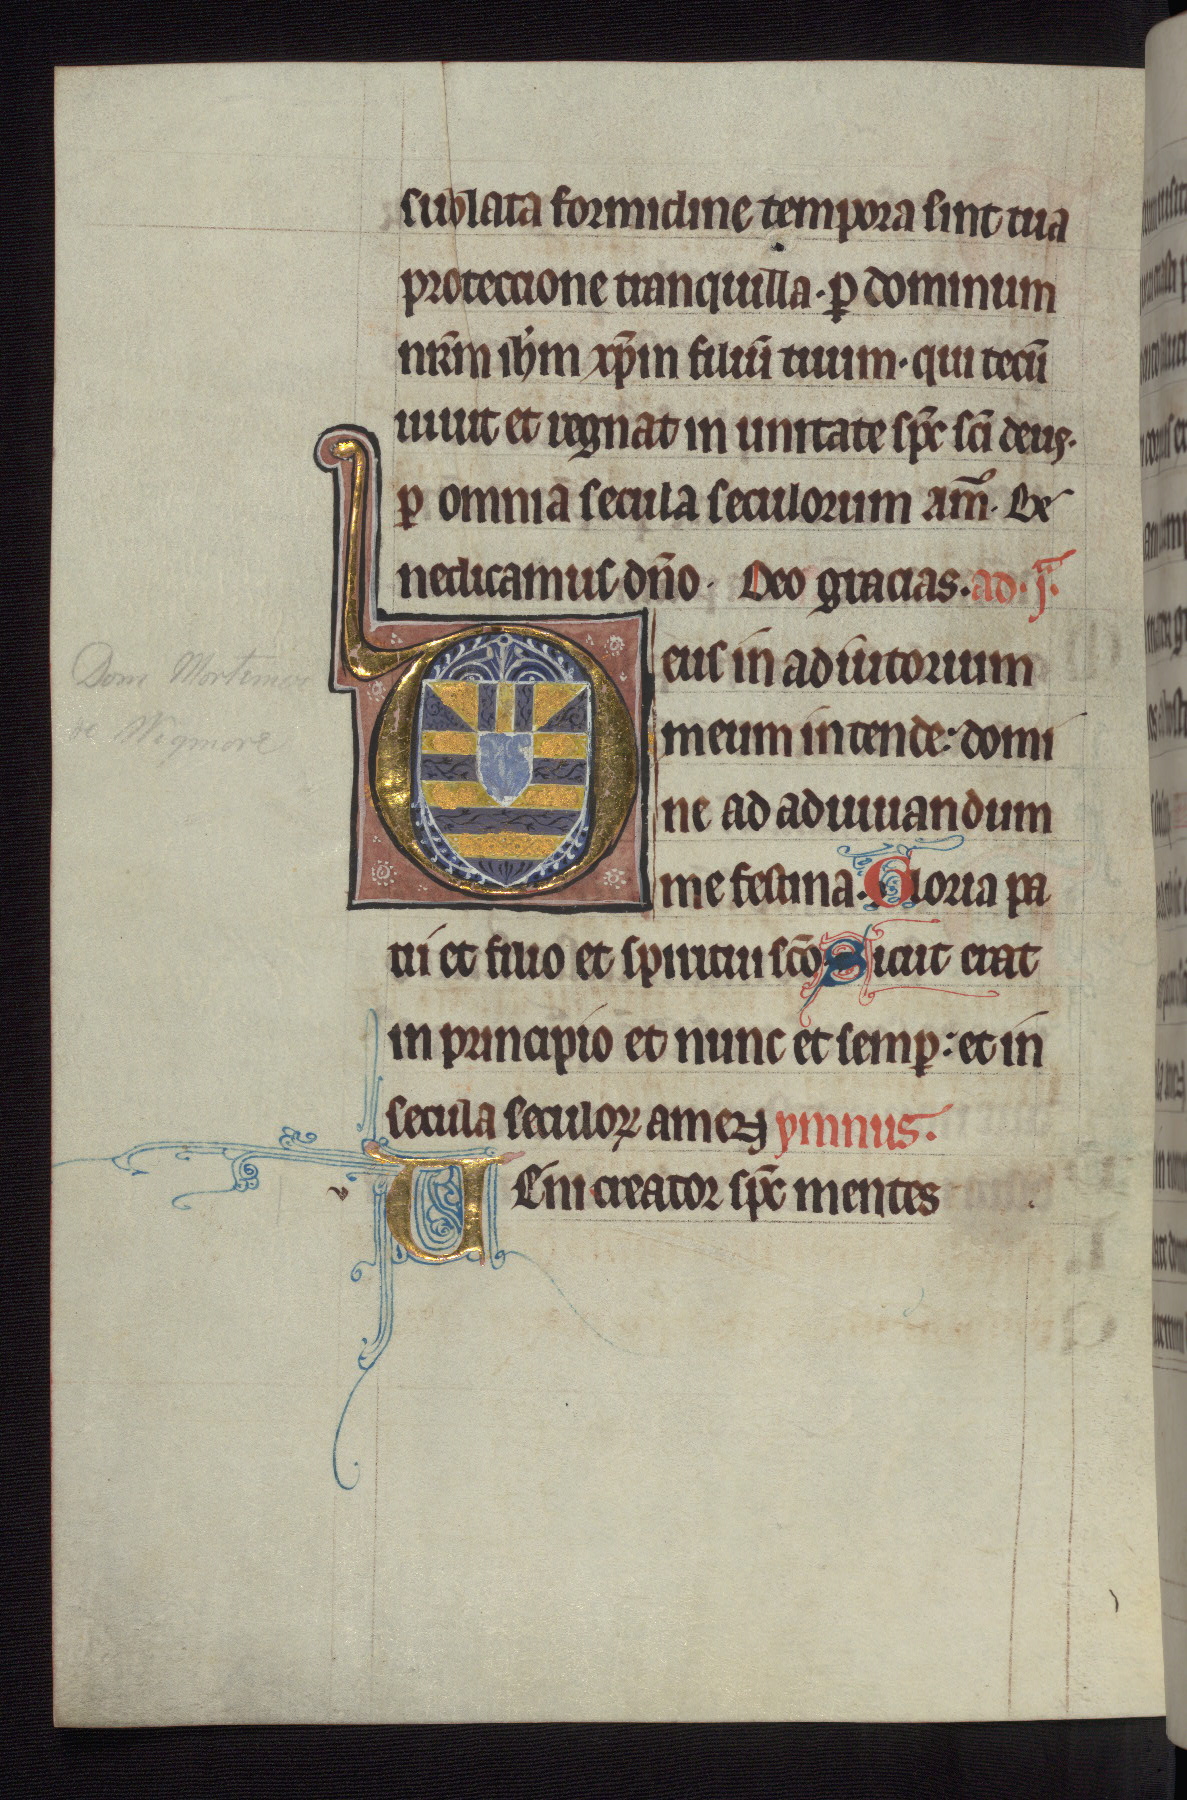 sublata formidine tempora sint tua
proteccione tranquilla. ꝑ dominum
nr̄m ih̄m xp̄m filiū tuum. qui tecū
uiuit et regnat in unitate sp̄c sc̄i deus.
ꝑ omnia secula seculorum am̄. Be
nedicamus dn̄o. Deo gracias. ad. j.
Deus in adiutorium
meum intende: domi
ne ad adiuuandum
me festina. Gloria pa
tri et filio et spiritui sc̄o Sicut erat
in principio et nunc et semꝑ: et in
secula seculoꝝ amen ymnus.
Ueni creator sp̄c mentes
Dom Mortimer
de Wigmore